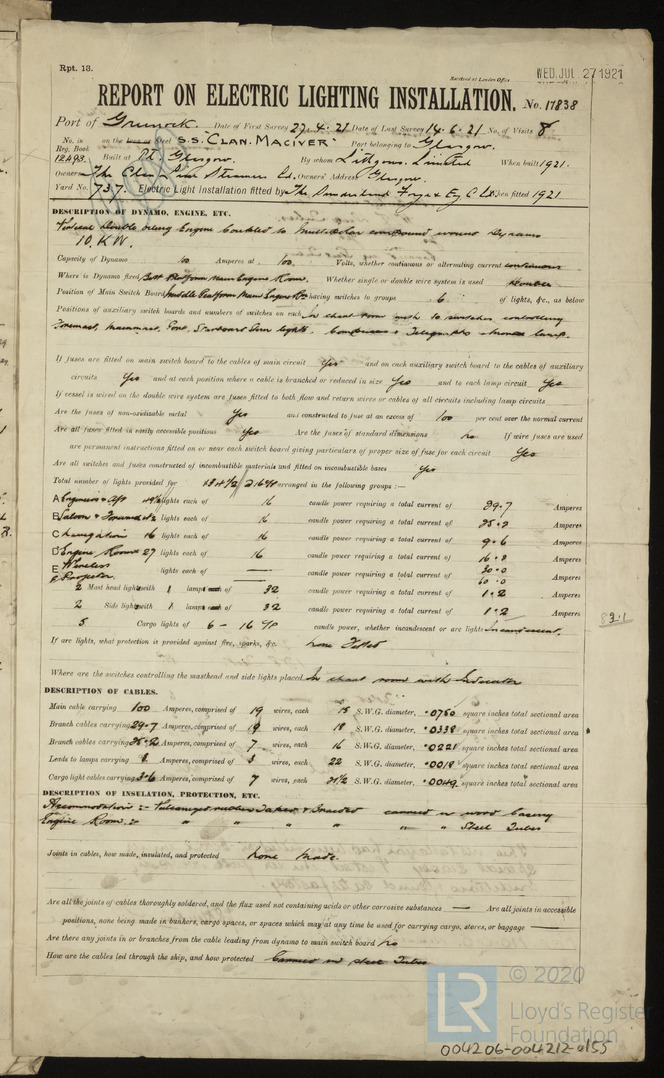 Rpt. 13.
Received at London Office WED. JUL 27 1921
REPORT ON ELECTRIC LIGHTING INSTALLATION. No. 17838
Port of Greenock Date of First Survey 27.4.21 Date of Last Survey 14.6.21 No. of Visits 8
No. in Reg. Book on the Iron or Steel S.S. "CLAN. MACIVER" Port belonging to Glasgow.
12493. Built at Pt. Glasgow. By whom Lithgows. Limited When built 1921.
Owners The Clan Line Steamers Ld. Owners' Address Glasgow.
Yard No. 737. Electric Light Installation fitted by The Sunderland Forge & Eng C Ld. When fitted 1921
DESCRIPTION OF DYNAMO, ENGINE, ETC.
Vertical Double acting Engine Coupled to Multipolar compound wound Dynamo
10. K.W.
Capacity of Dynamo Amperes at 100. Volts, whether continuous or alternating current continuous
Where is Dynamo fixed Bott Platform Main Engine Room. Whether single or double wire system is used Double
Position of Main Switch Board Middle Platform Main Engine Rm having switches to groups 6 of lights, &c., as below
Positions of auxiliary switch boards and numbers of switches on each In chart room with 10 switches controlling
Foremast, Mainmast, Port, Starboard lights. Compasses & Telegraphs lamp.
If fuses are fitted on main switch board to the cables of main circuit Yes and on each auxiliary switch board to the cables of auxiliary
circuits Yes and at each position where a cable is branched or reduced in size Yes and to each lamp circuit Yes
If vessel is wired on the double wire system are fuses fitted to both flow and return wires or cables of all circuits including lamp circuits
Are the fuses of non-oxidizable metal Yes and constructed to fuse at an excess of 100 per cent over the normal current
Are all fuses fitted in easily accessible positions Yes Are the fuses of standard dimensions no If wire fuses are used
are permanent instructions fitted on or near each switch board giving particulars of proper size of fuse for each circuit Yes
Are all switch and fuses constructed of incombustible materials and fitted on incombustible bases Yes
Total number of lights provided for arranged in the following groups :—
A Engineers & Aft lights each of 16 candle power requiring a total current of 29.7 Amperes
B Saloon & lights each of 16 candle power requiring a total current of 25.2 Amperes
C Navigation 16 lights each of 16 candle power requiring a total current of 9.6 Amperes
D Engine Room 27 lights each of 16 candle power requiring a total current of 16.2 Amperes
E Wireless lights each of — candle power requiring a total current of 30.0 Amperes
F Projector. — 60.0
2 Mast head lights with 1 lamps each of 32 candle power requiring a total current of 1.2 Amperes
2 Side lights with 1 lamps each of 32 candle power requiring a total current of 1.2 Amperes
5 Cargo lights of 6 – 16 cp candle power, whether incandescent or arc lights Incandescent.
83.1
If arc lights, what protection is provided against fire, sparks, &c. none Fitted
Where are the switches controlling the masthead and side lights placed In chart room with Indicator
DESCRIPTION OF CABLES.
Main cable carrying 100 Amperes, comprised of 19 wires, each 15 S.W.G. diameter, .0750 square inches total sectional area
Branch cables carrying 29.7 Amperes, comprised of 19 wires, each 18 S.W.G. diameter, .0338 square inches total sectional area
Branch cables carrying 25.2 Amperes, comprised of 7 wires, each 16 S.W.G. diameter, .0221 square inches total sectional area
Leads to lamps carrying Amperes, comprised of wires, each 22 S.W.G. diameter, .0018 square inches total sectional area
Cargo light cables carrying 3.6 Amperes, comprised of 7 wires, each 21½ S.W.G. diameter, .0049 square inches total sectional area
DESCRIPTION OF INSULATION, PROTECTION, ETC.
Accommodation :- Vulcanized rubber Taped & Braided carried in wood casing
Engine Room :- " " " " " " Steel Tubes
Joints in cables, how made, insulated, and protected none made.
Are all the joints of cables thoroughly soldered, and the flux used not containing acids or other corrosive substances — Are all joints in accessible
positions, none being made in bunkers, cargo spaces, or spaces which may at any time be used for carrying cargo, stores, or baggage —
Are there any joints in or branches from the cable leading from dynamo to main switch board no
How are the cables led through the ship, and how protected Carried in steel Tubes
LR
© 2020
Lloyd's Register
Foundation
004206-004212-0155